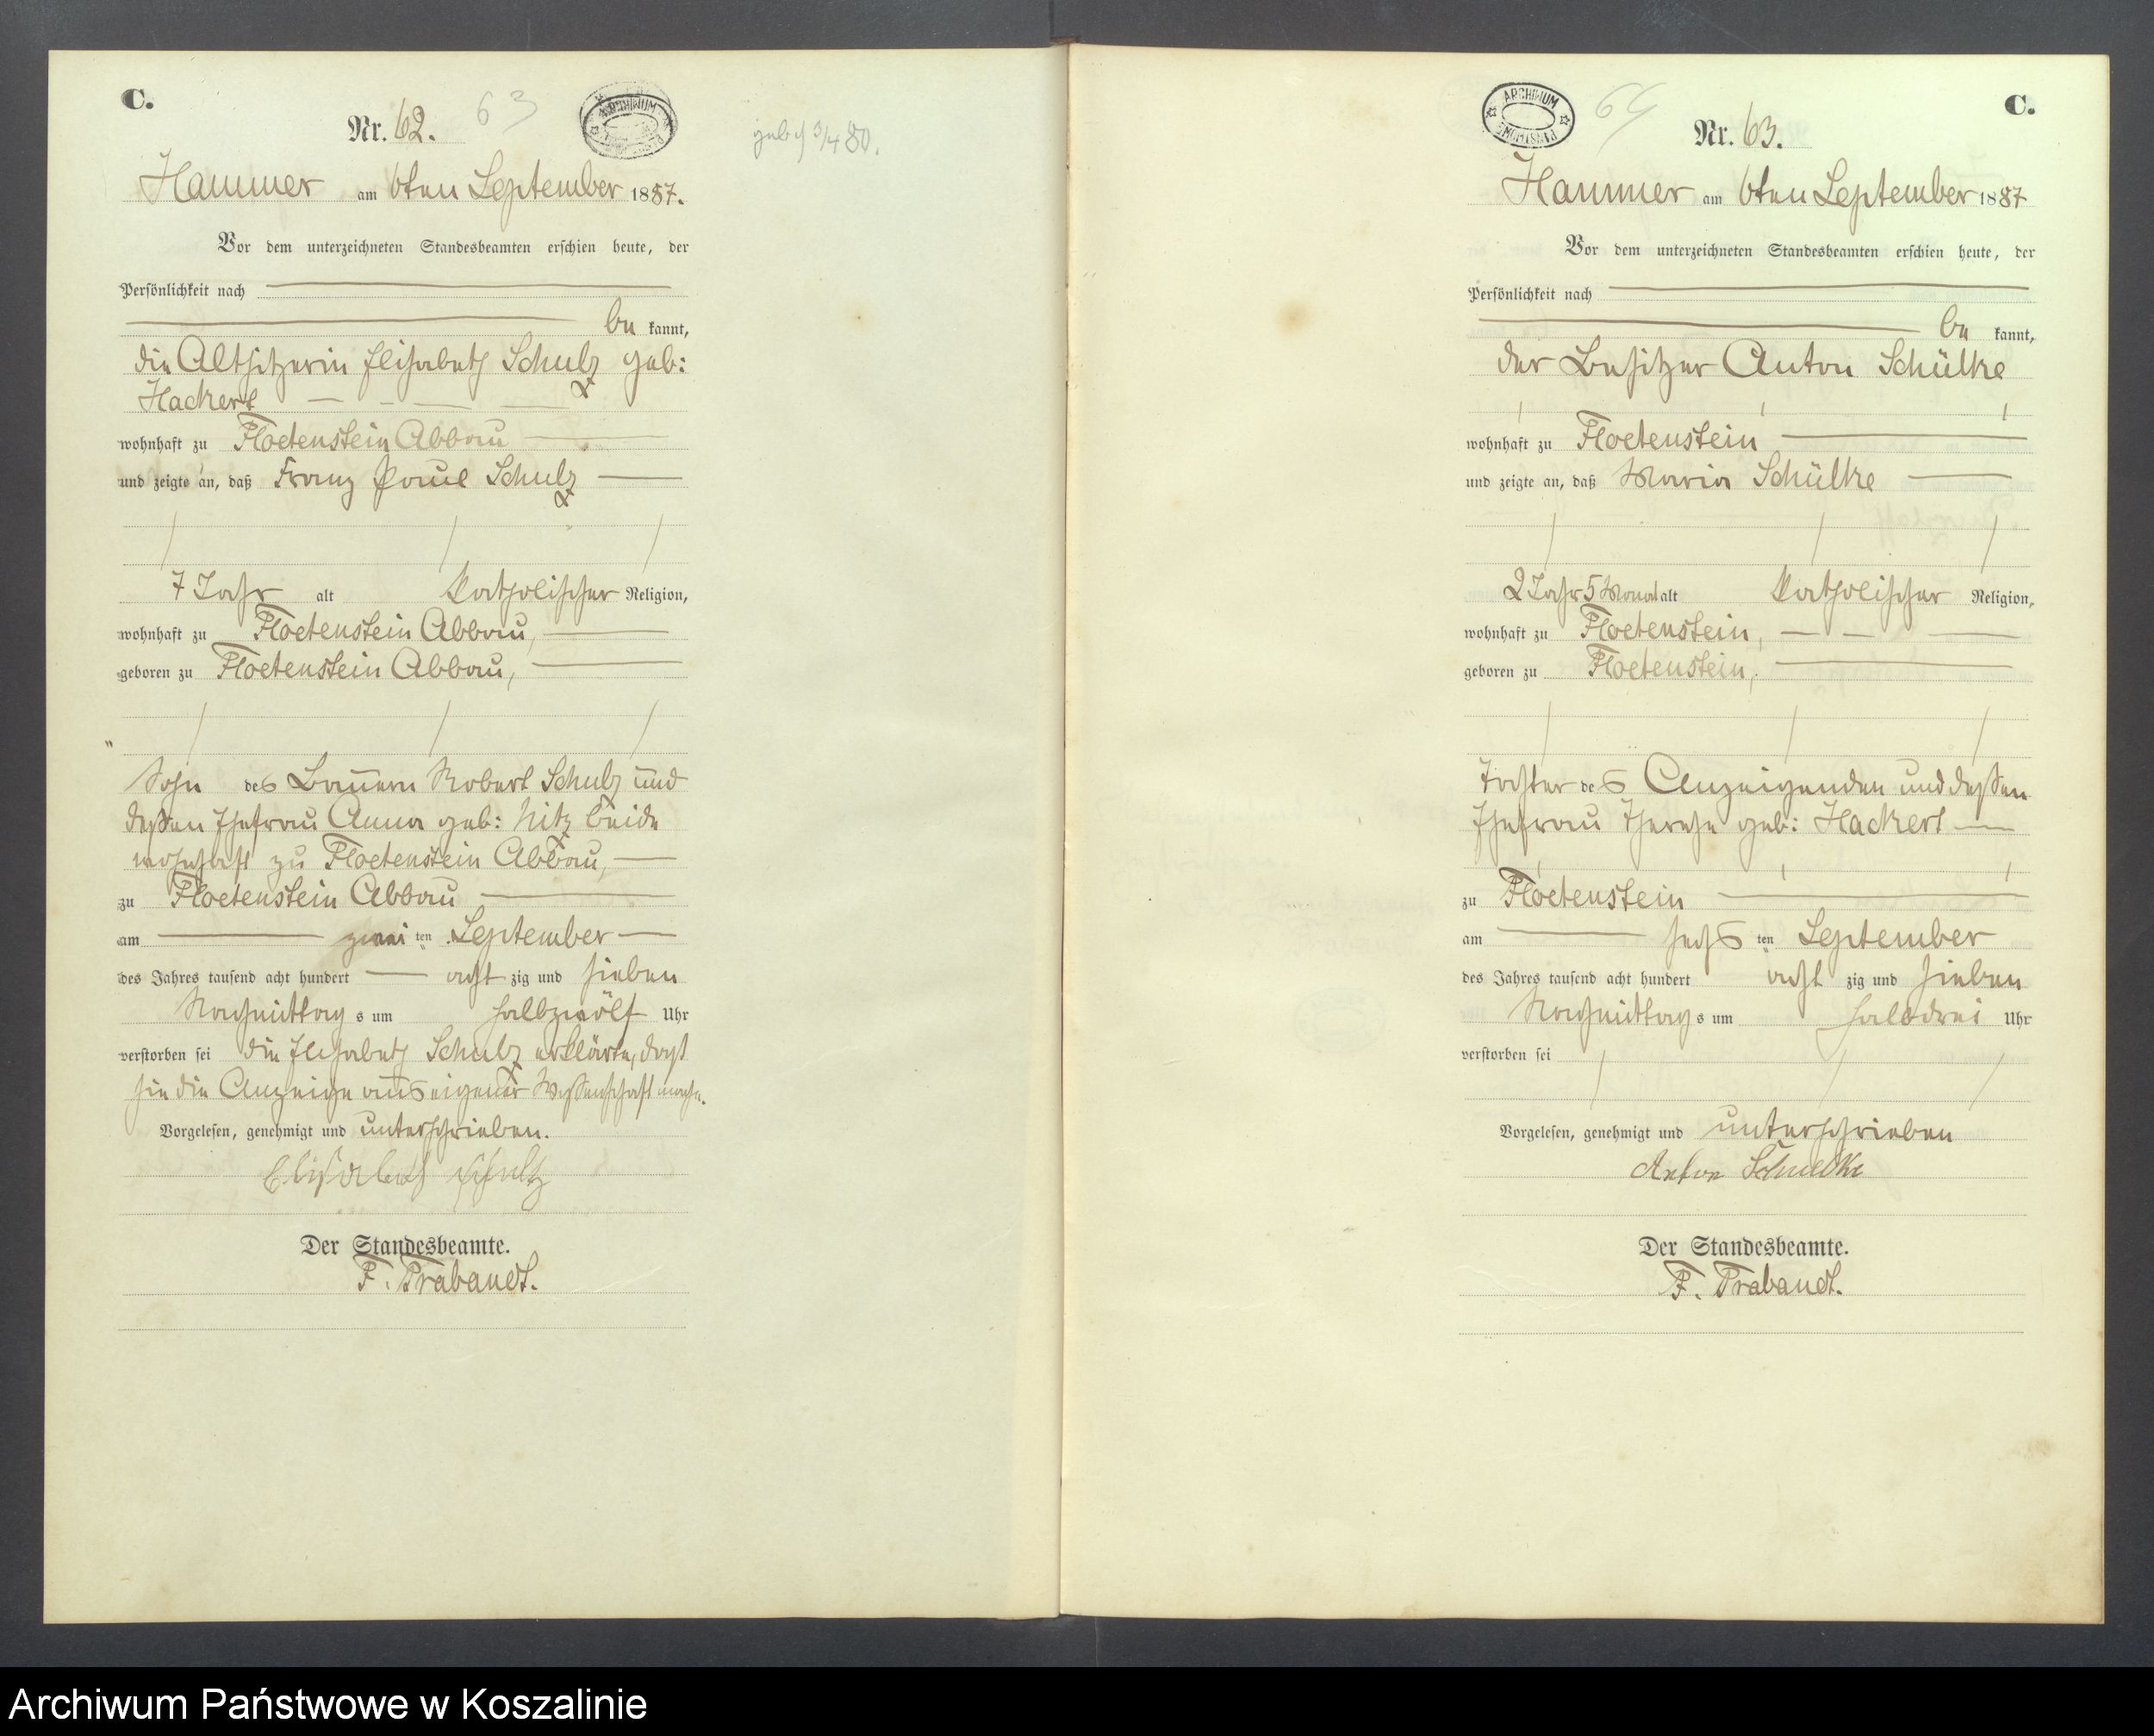 C.
Nr. 62. 63
ARCHIWUM
geb. d 3/4 80.
Hammer am 6ten September 1887.
Vor dem unterzeichneten Standesbeamten erschien heute, der
Persönlichkeit nach
be kannt,
die Altsitzerin Elisabeth Schulz geb:
Hackert
wohnhaft zu Floetenstein Abbau
und zeigte an, daß Franz Paul Schulz
7 Jahr alt katholischer Religion,
wohnhaft zu Floetenstein Abbau,
geboren zu Floetenstein Abbau,
Sohn des Bauern Robert Schulz und
deßen Ehefrau Anna geb: Nitz beide
wohnhaft zu Floetenstein Abbau,
zu Floetenstein Abbau
am zwei ten September
des Jahres tausend acht hundert acht zig und sieben
Nachmittag s um halbzwölf Uhr
verstorben sei die Elisabeth Schulz erklärte, daß
sie die Anzeige aus eigener Wißenschaft mache.
Vorgelesen, genehmigt und unterschrieben.
Elisabeth Schultz
Der Standesbeamte.
F. Prabandt.
ARCHIWUM
64
C.
Nr. 63.
Hammer am 6ten September 1887
Vor dem unterzeichneten Standesbeamten erschien heute, der
Persönlichkeit nach
be kannt,
der Besitzer Anton Schülke
wohnhaft zu Floetenstein
und zeigte an, daß Maria Schülke
2 Jahr 5 Monat alt katholischer Religion,
wohnhaft zu Floetenstein,
geboren zu Floetenstein,
Tochter des Anzeigenden und deßen
Ehefrau Therese geb: Hackert
zu Floetenstein
am sechs ten September
des Jahres tausend acht hundert acht zig und sieben
Nachmittag s um halbdrei Uhr
verstorben sei
Vorgelesen, genehmigt und unterschrieben
Anton Schuelke
Der Standesbeamte.
F. Prabandt.
Archiwum Państwowe w Koszalinie